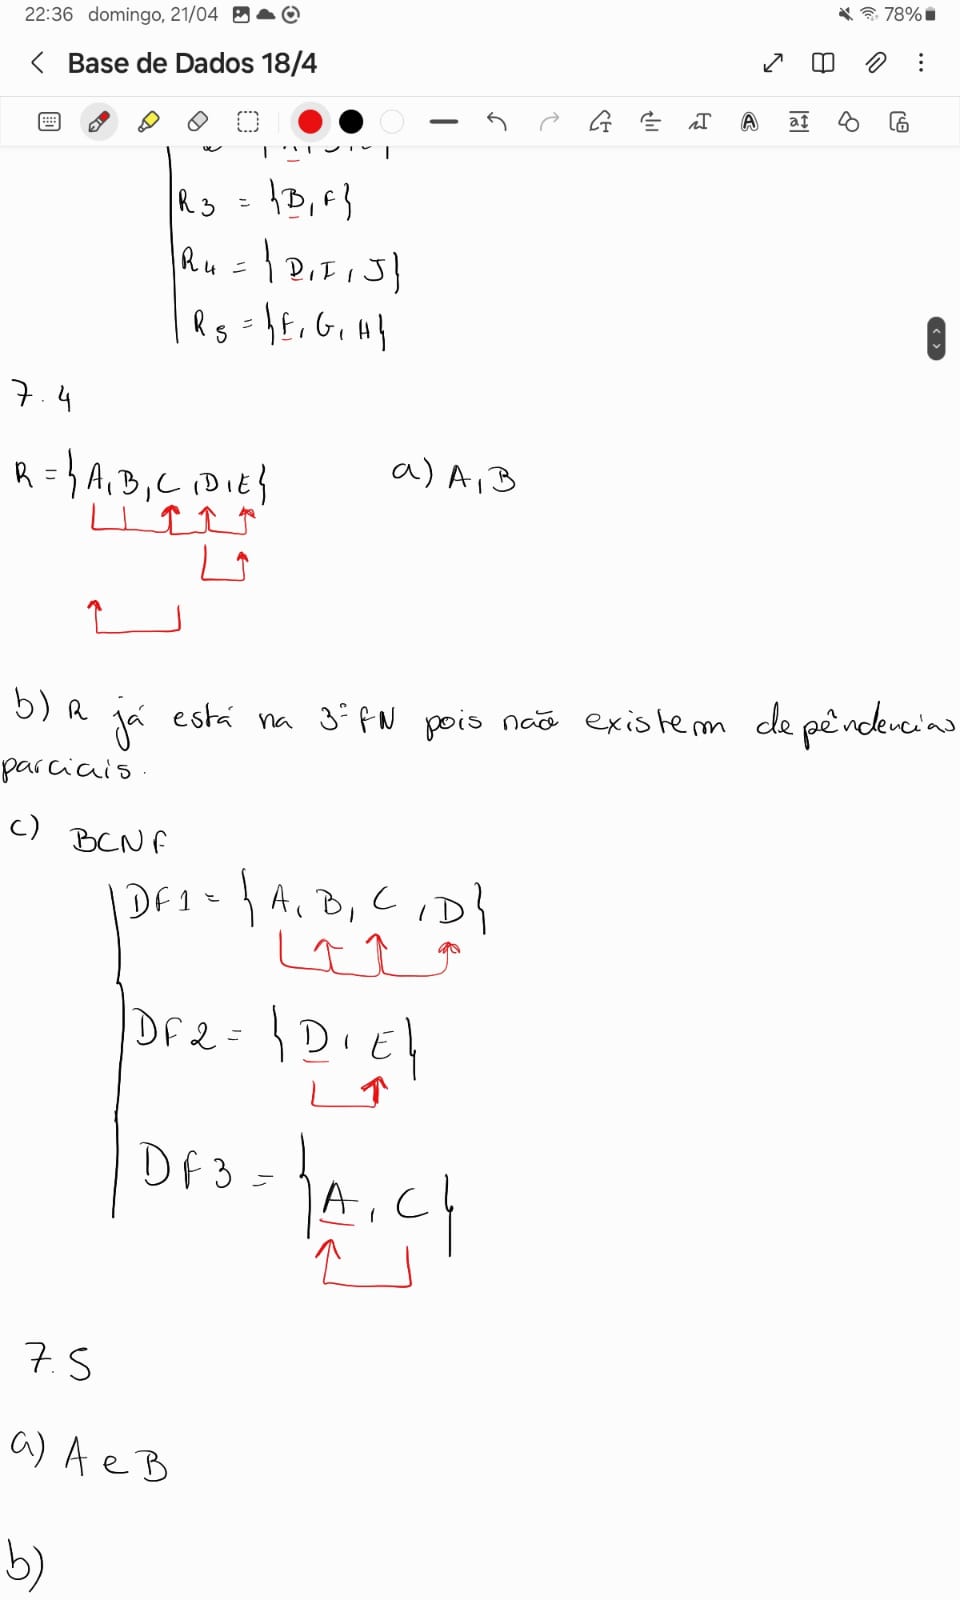 22:36 domingo, 21/04 78%
Base de Dados 18/4
R3 = {B, F}
R4 = {D, I, J}
R5 = {F, G, H}
7.4
R = {A, B, C, D, E}
a) A, B
b) R já está na 3ª FN pois não existem depêndencias
parciais.
c) BCNF
DF1 = {A, B, C, D}
DF2 = {D, E}
DF3 = {A, C}
7.5
a) A e B
b)